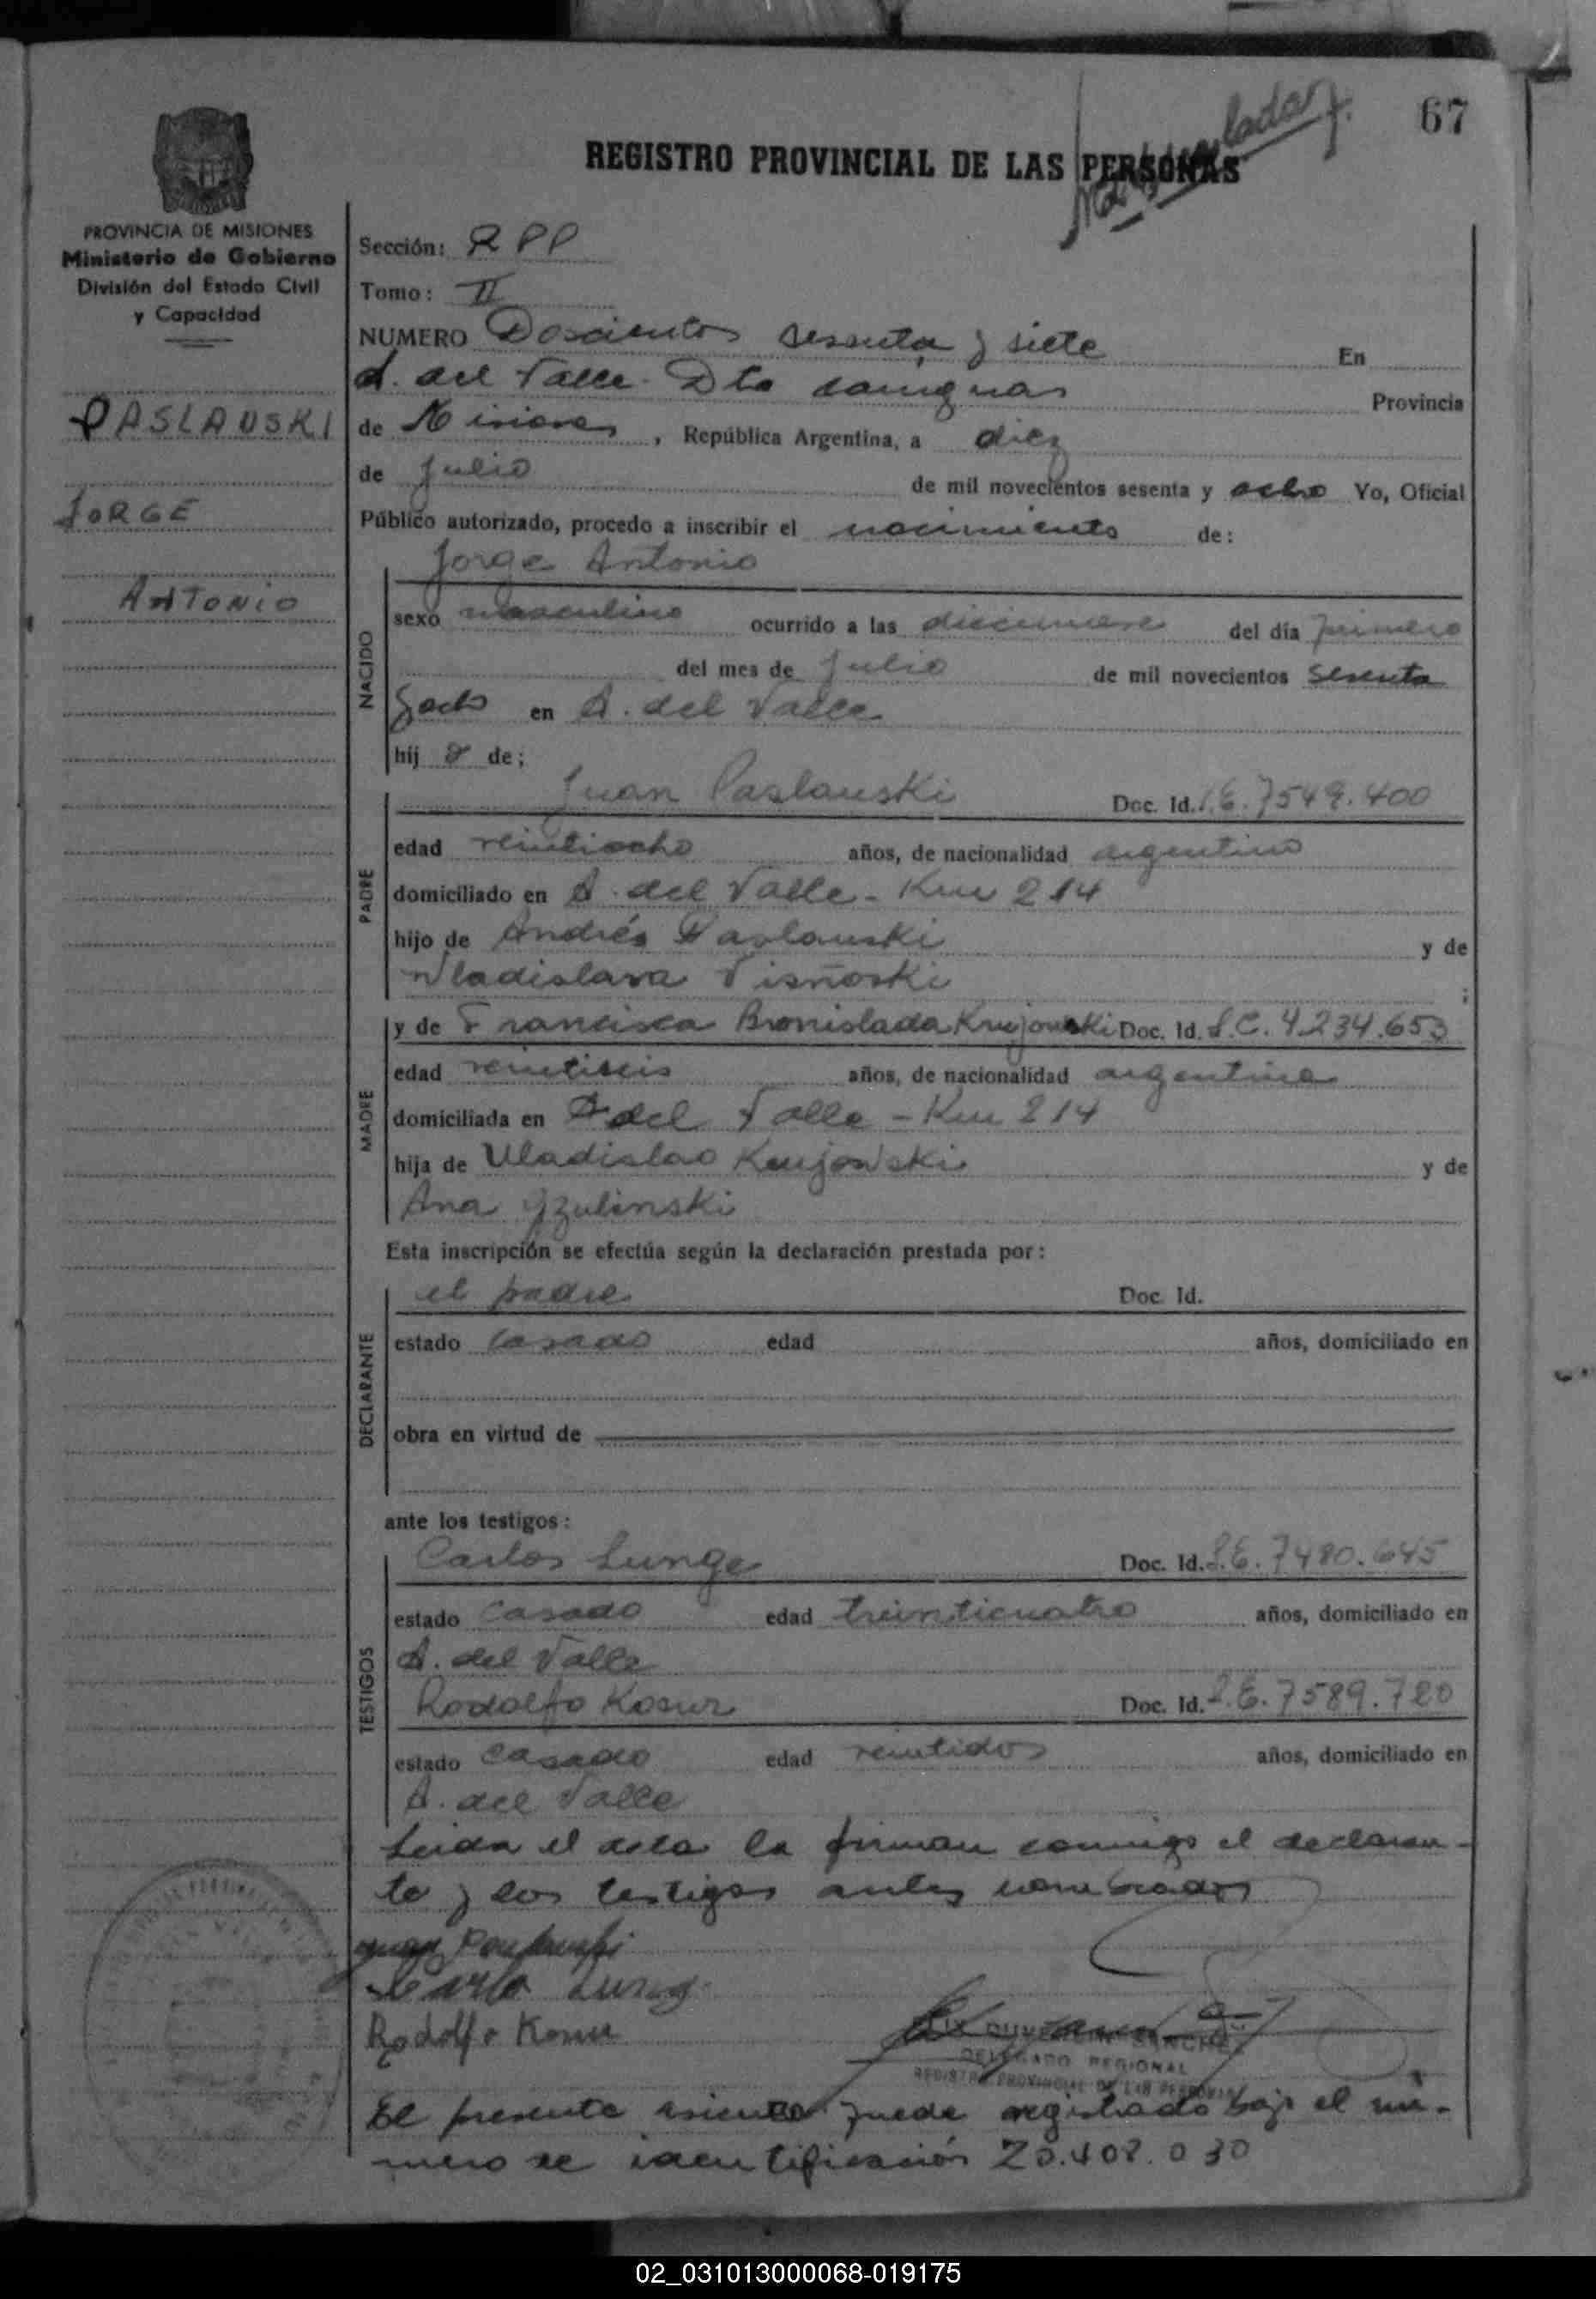 67
REGISTRO PROVINCIAL DE LAS PERSONAS
PROVINCIA DE MISIONES
Ministerio de Gobierno
División del Estado Civil
y Capacidad
PASLAUSKI
JORGE
ANTONIO
Sección: RPP
Tomo: II
NUMERO Doscientos sesenta y siete En
A. del Valle - Dto Cainguas Provincia
de Misiones, República Argentina, a diez
de Julio de mil novecientos sesenta y ocho Yo, Oficial
Público autorizado, procedo a inscribir el nacimiento de:
Jorge Antonio
NACIDO
sexo masculino ocurrido a las del día primero
del mes de Julio de mil novecientos sesenta
y ocho en A. del Valle
hij o de;
PADRE
Juan Paslauski Doc. Id. L.E. 7549.400
edad veintiocho años, de nacionalidad argentino
domiciliado en A. del Valle - Km 214
hijo de Andrés Paslauski y de
Wladislava Visñoski ;
MADRE
y de Francisca Bronislada Krujowski Doc. Id. L.C. 4.234.653
edad veintiseis años, de nacionalidad argentina
domiciliada en A del Valle - Km 214
hija de Uladislao Krujowski y de
Ana Gzulinski
Esta inscripción se efectúa según la declaración prestada por:
DECLARANTE
el padre Doc. Id.
estado casado edad años, domiciliado en
obra en virtud de
ante los testigos:
TESTIGOS
Carlos Lunge Doc. Id. L.E. 7480.645
estado casado edad treinticuatro años, domiciliado en
A. del Valle
Rodolfo Kosur Doc. Id. L.E. 7589.720
estado casado edad veintidos años, domiciliado en
A. del Valle
Leida el acta la firman conmigo el declaran-
te y los testigos antes nombrados
Juan Paslauski
Carlo Lung
Rodolfo Kosur
DELEGADO REGIONAL
REGISTRO PROVINCIAL DE LAS PERSONAS
El presente asiento puede registrado bajo el nú-
mero de identificación 20.408.030
02_031013000068-019175